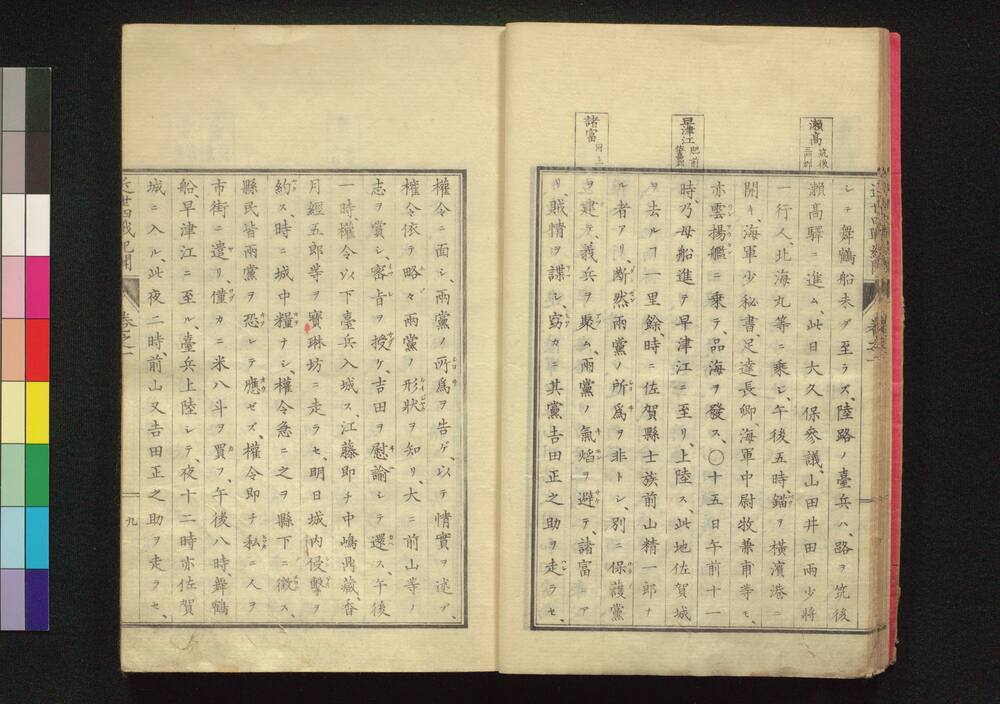 瀬高 筑後
早津江 肥前
諸富 同上
シテ舞鶴船未ダ至ラズ、陸路ノ臺兵ハ、路ヲ筑後
瀬高驛ニ進ム、此日大久保參議、山田井田兩少將
一行人、北海丸等ニ乘シ、午後五時、錨ヲ橫濱港ニ
開キ、海軍少秘書、足達長卿、海軍中尉牧兼甫等モ、
亦雲揚艦ニ乘テ、品海ヲ發ス、〇十五日午前十一
時、乃母船進テ早津江ニ至リ、上陸ス、此地佐賀城
ヲ去ルヿ一里餘、時ニ佐賀縣士族前山精一郎ヲ
ル者アリ、斷然兩黨ノ所爲ヲ非トシ、別ニ保護黨
ヲ建テ、義兵ヲ聚ム、兩黨ノ氣焰ヲ避テ、諸富ニア
リ、賊情ヲ諜シ、竊カニ其黨吉田正之助ヲ走ラセ
權令ニ面シ、兩黨ノ所爲ヲ告ゲ、以テ情實ヲ述ブ、
權令依テ略々兩黨ノ形狀ヲ知リ、大ニ前山等ノ
志ヲ賞シ、密旨ヲ授ケ、吉田ヲ慰諭シテ還ス、午後
一時、權令以下臺兵入城ス、江藤即チ中嶋鼎藏、香
月經五郎等ヲ寶琳坊ニ走ラセ、明日城内侵擊ヲ
約ス、時ニ城中糧ナシ、權令急ニ之ヲ縣下ニ徵ス、
縣民皆兩黨ヲ恐レテ應ゼズ、權令即チ私ニ人ヲ
市街ニ遣リ、僅カニ米八斗ヲ買フ、午後八時舞鶴
船、早津江ニ至ル、臺兵上陸シテ、夜十二時亦佐賀
城ニ入ル、此夜二時、前山又吉田正之助ヲ走ラセ、
近世四戰紀聞 卷之一 九